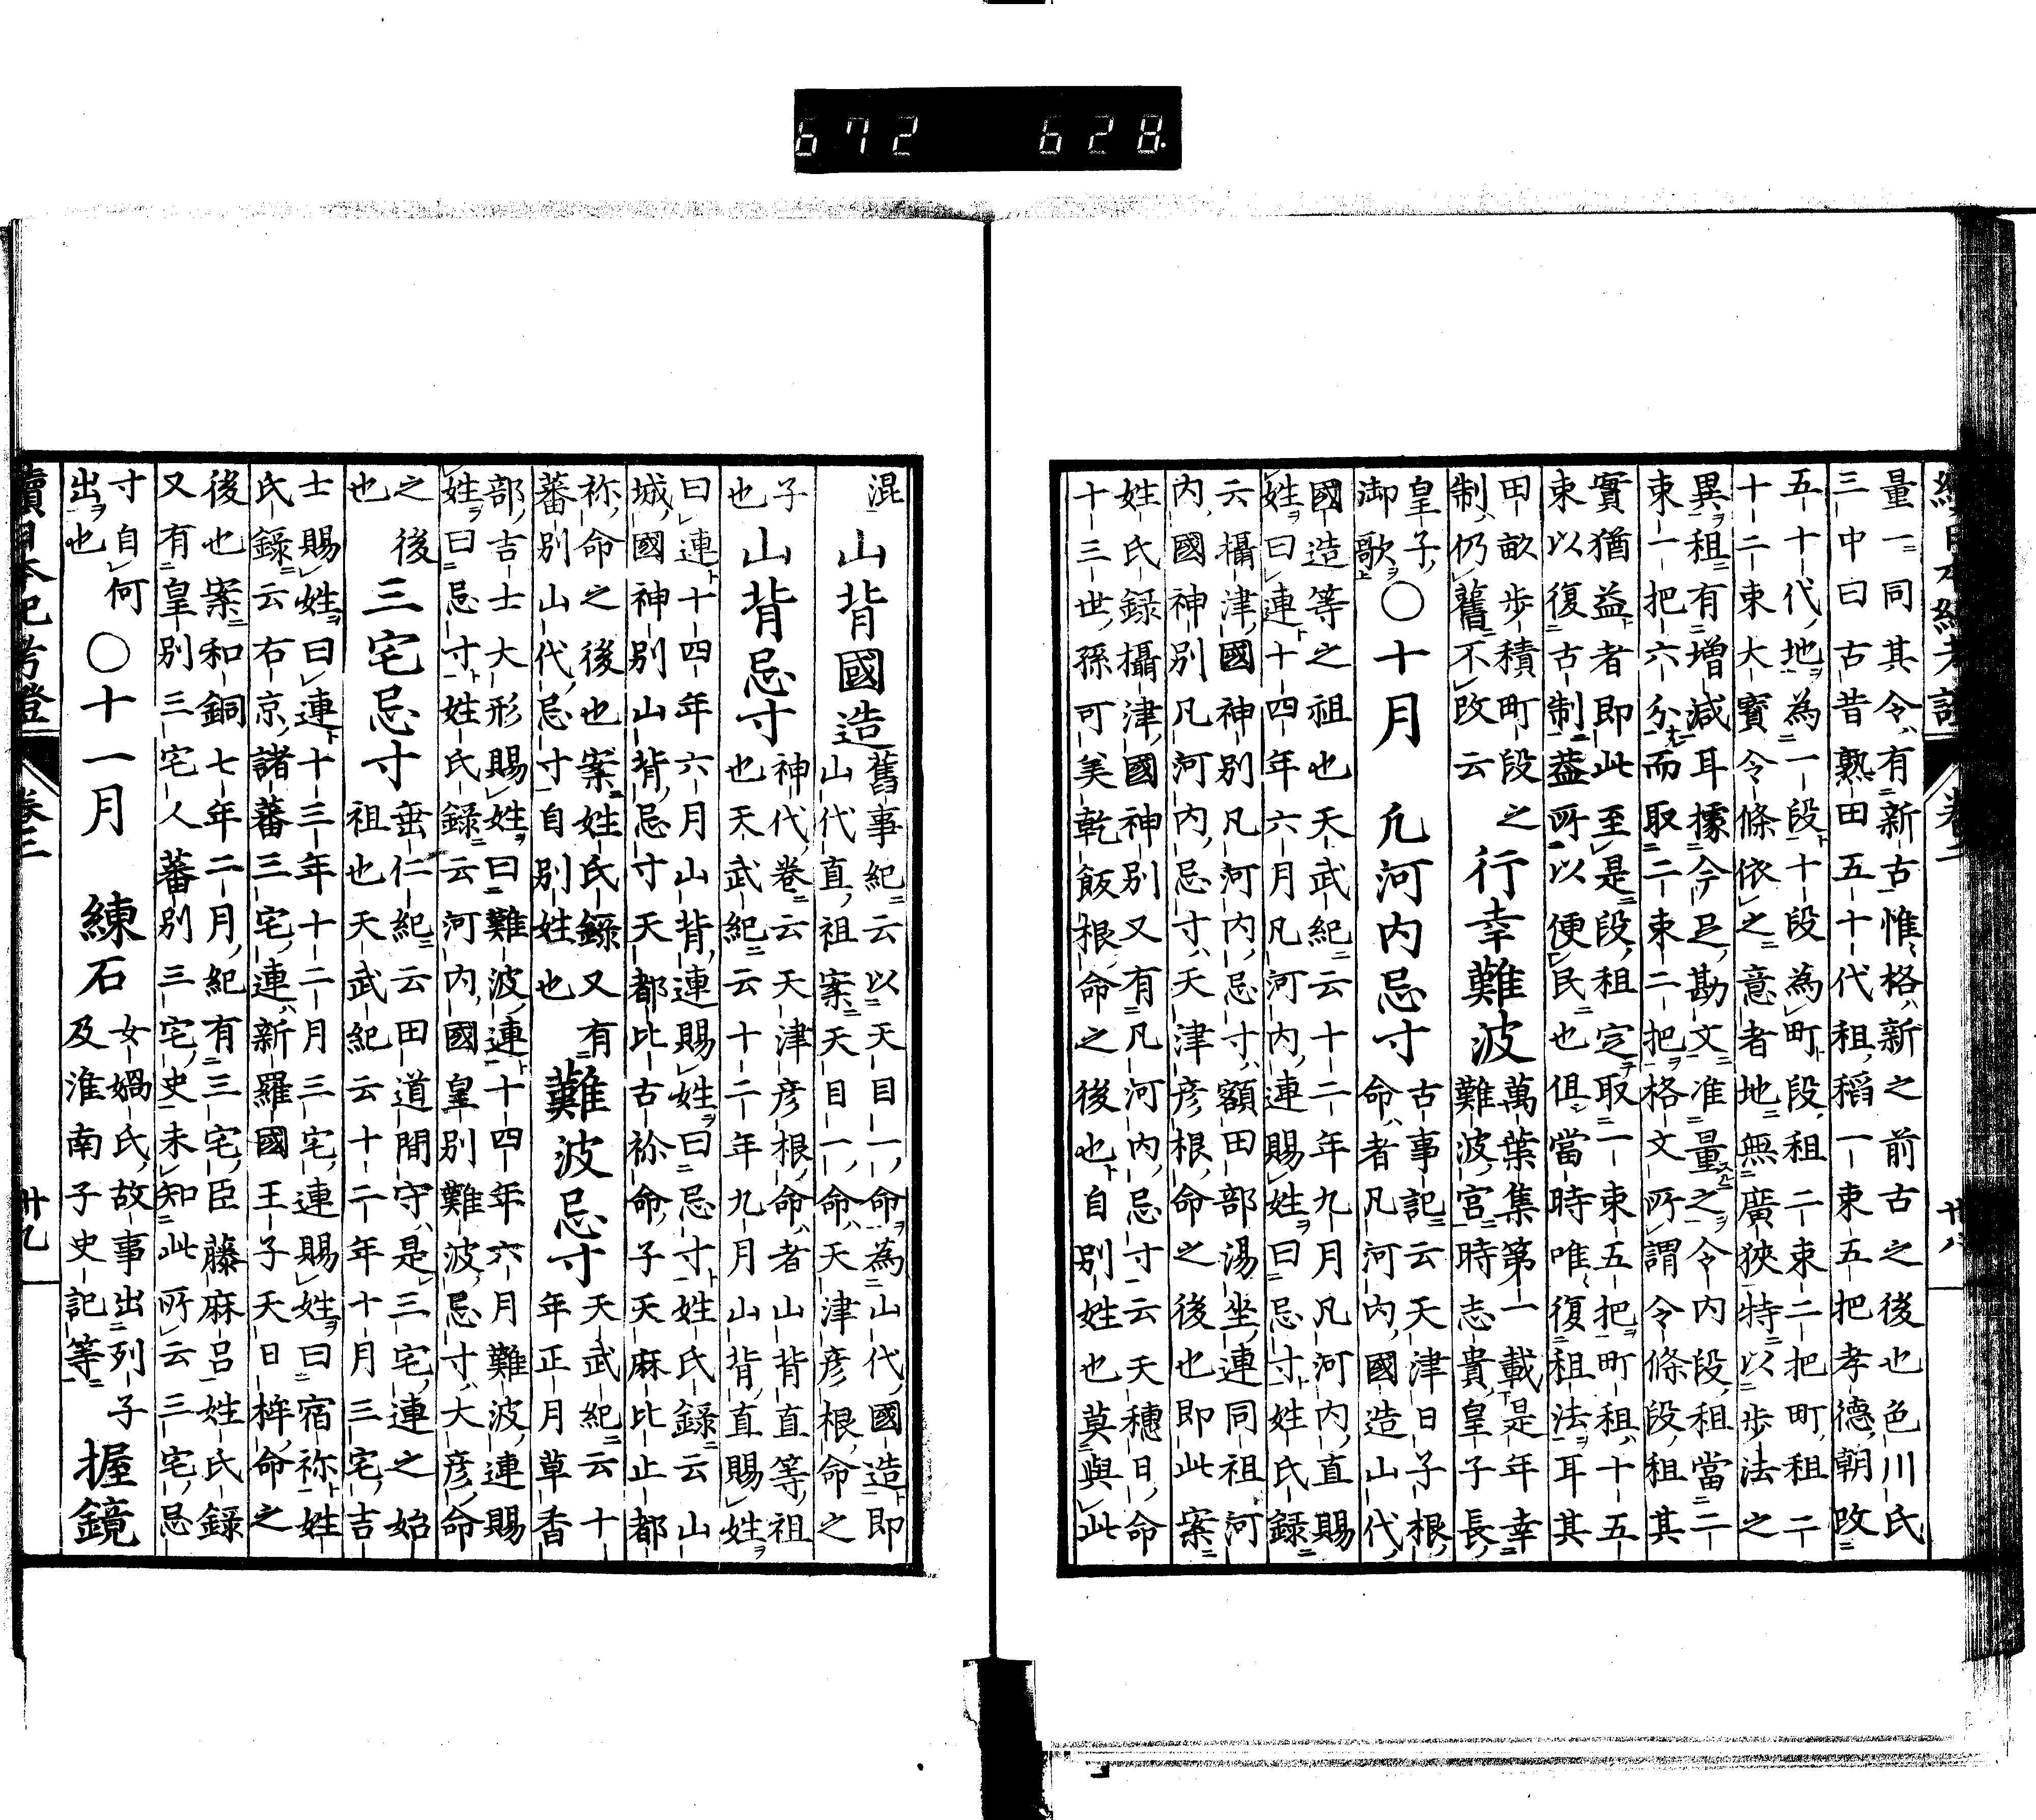 續日本紀考證 卷三 廿八
量一同其令有新古惟格新之前古之後也色川氏
三中曰古昔熟田五十代租稻一束五把孝德朝改
五十代地為一段十段為町段租二束二把町租二
十二束大寶令條依之意者地無廣狹特以步法之
異租有增減耳據今㠯勘文准量之令內段租當二
束一把六分而取二束二把格文所謂令條段租其
實猶益者即此至是段租定取一束五把町租十五
束以復古制蓋所以便民也但當時唯復租法耳其
田畝步積町段之
制仍舊不改云
行幸難波
萬葉集第一載是年幸
難波宮時志貴皇子長
皇子
御歌
○十月 凡河内忌寸
古事記云天津日子根
命者凡河內國造山代
國造等之祖也天武紀云十二年九月凡河內直賜
姓曰連十四年六月凡河內連賜姓曰忌寸姓氏錄
云攝津國神別凡河內忌寸額田部湯坐連同祖河
內國神別凡河內忌寸天津彥根命之後也即此案
姓氏錄攝津國神別又有凡河內忌寸云天穗日命
十三世孫可美乾飯根命之後也自別姓也莫與此
混
山背國造
舊事紀云以天目一命為山代國造即
山代直祖案天目一命天津彥根命之
子
也
山背忌寸
神代卷云天津彥根命者山背直等祖
也天武紀云十二年九月山背直賜姓
曰連十四年六月山背連賜姓曰忌寸姓氏錄云山
城國神別山背忌寸天都比古祢命子天麻比止都
祢命之後也案姓氏錄又有
蕃別山代忌寸自別姓也
難波忌寸
天武紀云十
年正月草香
部吉士大形賜姓曰難波連十四年六月難波連賜
姓曰忌寸姓氏錄云河內國皇別難波忌寸大彥命
之後
也
三宅忌寸
垂仁紀云田道間守是三宅連之始
祖也天武紀云十二年十月三宅吉
士賜姓曰連十三年十二月三宅連賜姓曰宿祢姓
氏錄云右京諸蕃三宅連新羅國王子天日桙命之
後也案和銅七年二月紀有三宅臣藤麻呂姓氏錄
又有皇別三宅人蕃別三宅史未知此所云三宅忌
寸自何
出也
○十一月 練石
女媧氏故事出列子
及淮南子史記等
握鏡
續日本紀考證 卷三 廿九
672 628